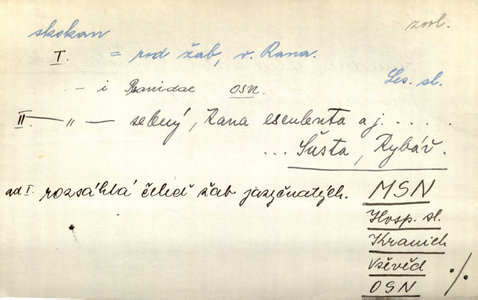 skokan zool.
I. = rod žab, v. Rana.
Les. sl.
– i Ranidae OSN.
II. — „ — zelený, Rana esculenta a j. . . . . .
. . . Šusta, Rybář.
ad I. rozsáhlá čeleď žab jazyčnatých. MSN
Hosp. sl.
Kranich
Vševěd
OSN ·/·